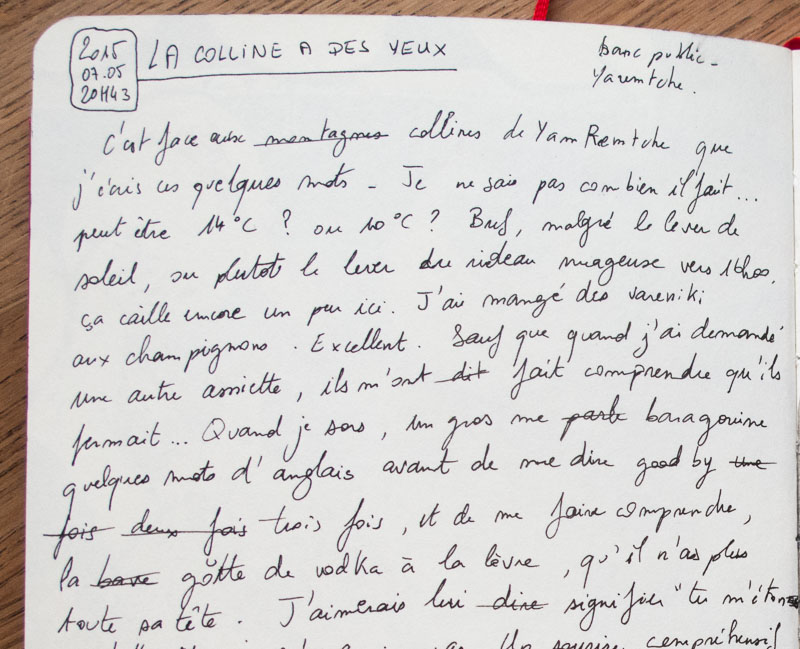 2015
07.05
20H43
LA COLLINE A DES YEUX
banc public -
Yaremtche.
C'est face aux montagnes collines de YamRemtche que
j'écris ces quelques mots - Je ne sais pas combien il fait...
peut être 14°C ? ou 10°C ? Bref, malgré le lever de
soleil, ou plutôt le lever du rideau nuageuse vers 16h00,
ça caille encore un peu ici. J'ai mangé des vareniki
aux champignons. Excellent. Sauf que quand j'ai demandé
une autre assiette, ils m'ont dit fait comprendre qu'ils
fermait... Quand je sors, un gros me parle baragouine
quelques mots d'anglais avant de me dire good by une
fois deux fois trois fois, et de me faire comprendre,
la bave gôtte de vodka à la lèvre, qu'il n'as plus
toute sa tête. J'aimerais lui dire signifier "tu m'étonnes
Un sourire compréhensif